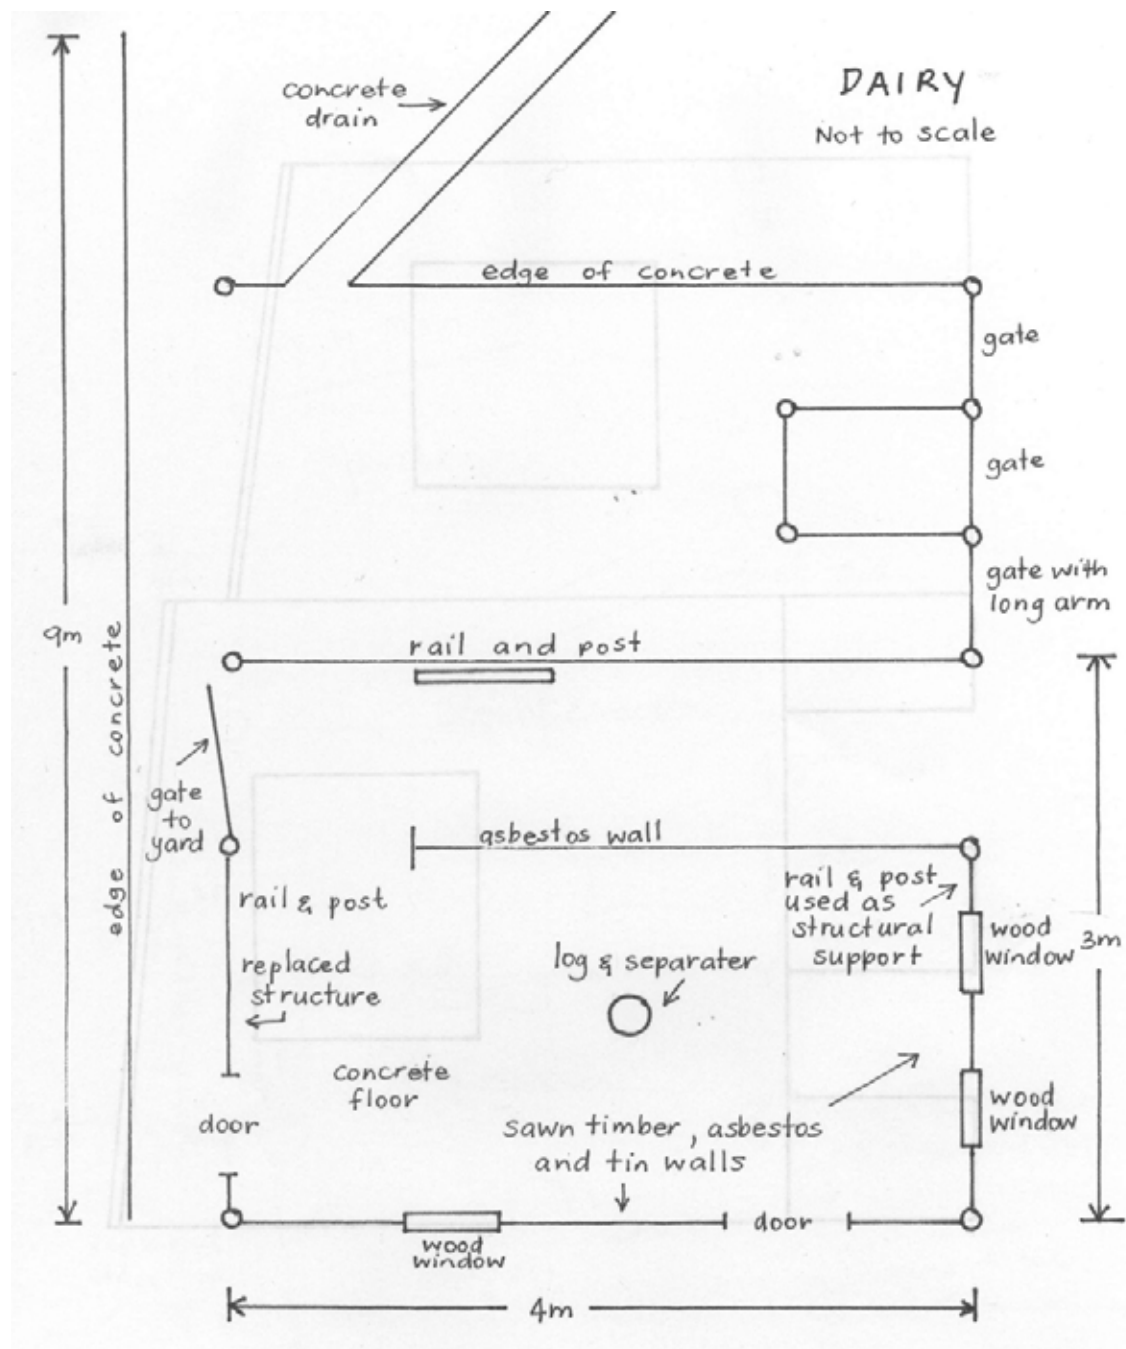 DAIRY
Not to scale
concrete
drain
edge of concrete
gate
gate
gate with
long arm
9m
edge of concrete
rail and post
gate
to
yard
asbestos wall
rail & post
rail & post
used as
structural
support
wood
window
3m
replaced
structure
log & separater
concrete
floor
wood
window
door
sawn timber, asbestos
and tin walls
door
wood
window
4m